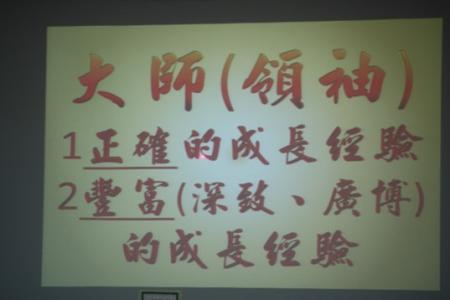 大師(領袖)
1正確的成長經驗
2豐富(深致、廣博)
的成長經驗